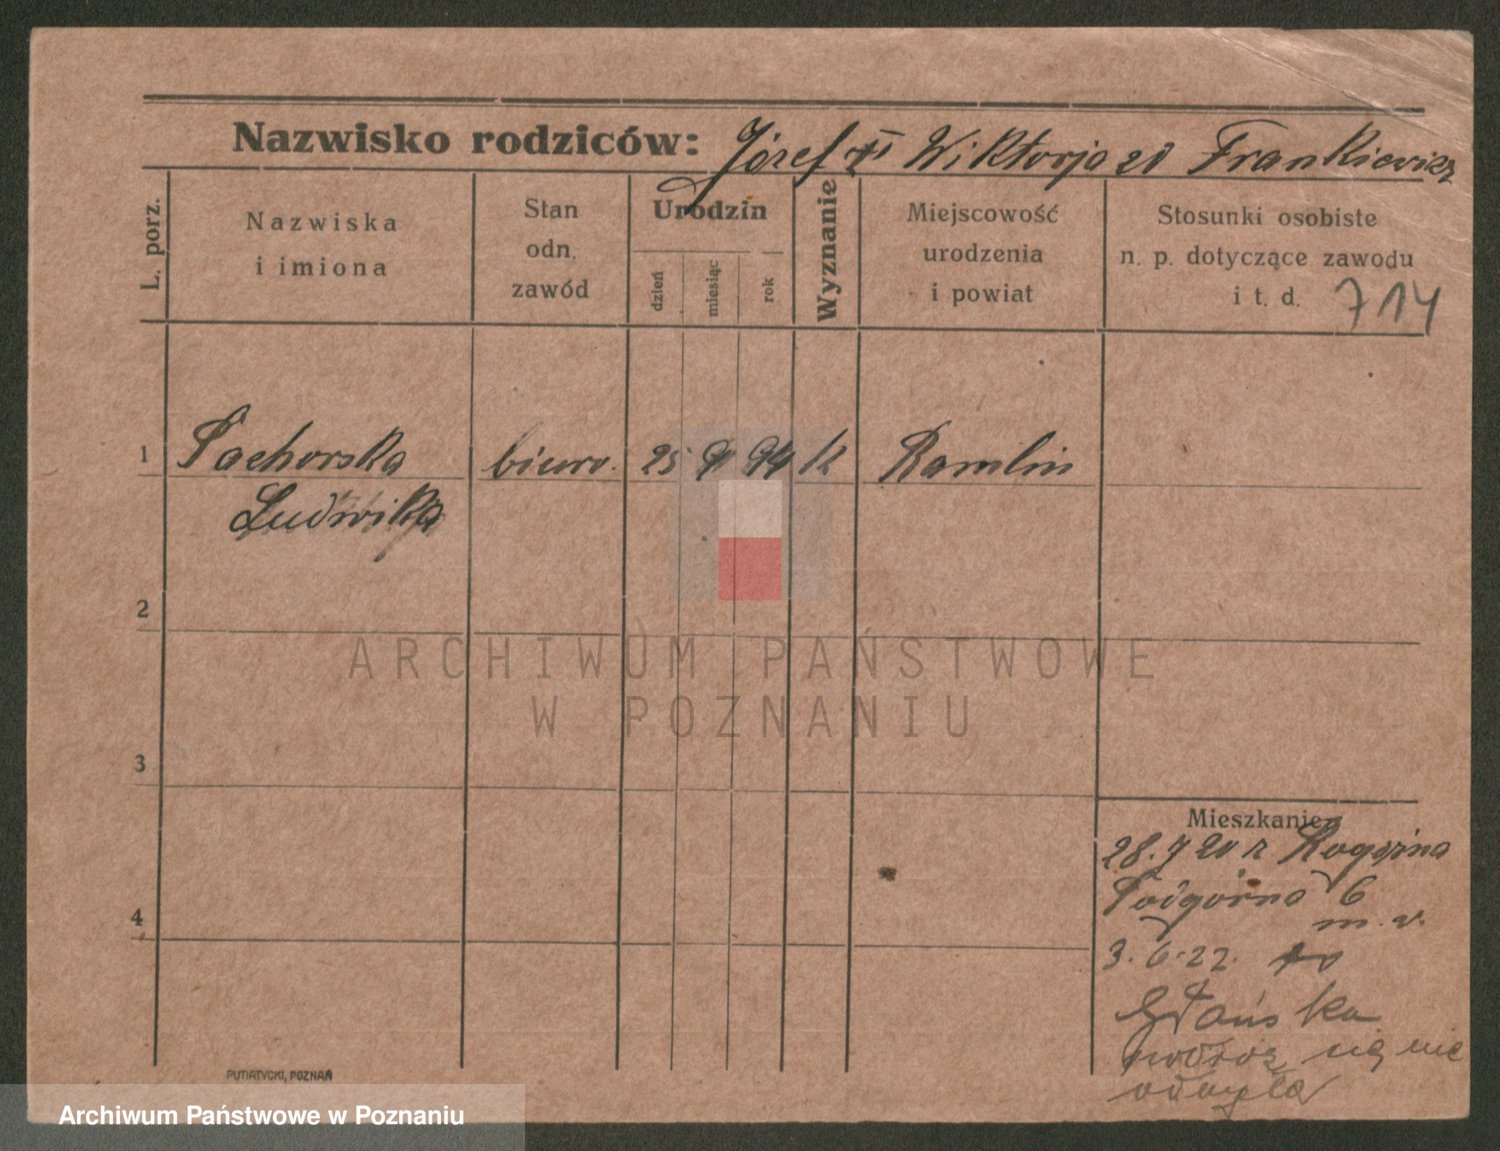 Nazwisko rodziców: Józef i Wiktorja zd Frankiewicz
L. porz.
Nazwiska
i imiona
Stan
odn.
zawód
Urodzin
dzień
miesiąc
rok
Wyznanie
Miejscowość
urodzenia
i powiat
Stosunki osobiste
n. p. dotyczące zawodu
i t. d. 714
1 Pachorska biuro. 25 9 94 k Ramlin
Ludwika
2
3
4
Mieszkanie:
28. 7 20 z Rogoźna
Podgórna 6
3. 6. 22.
Gdańska
się nie
odbyła
PUTIATYCKI, POZNAŃ
ARCHIWUM PAŃSTWOWE
W POZNANIU
Archiwum Państwowe w Poznaniu